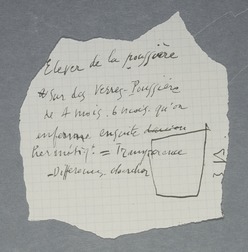 Elever de la poussière
Sur des Verres. Poussière
de 4 mois. 6 mois. qu'on
enferme ensuite
hermétiqt. = Transparence
= Différences. chercher